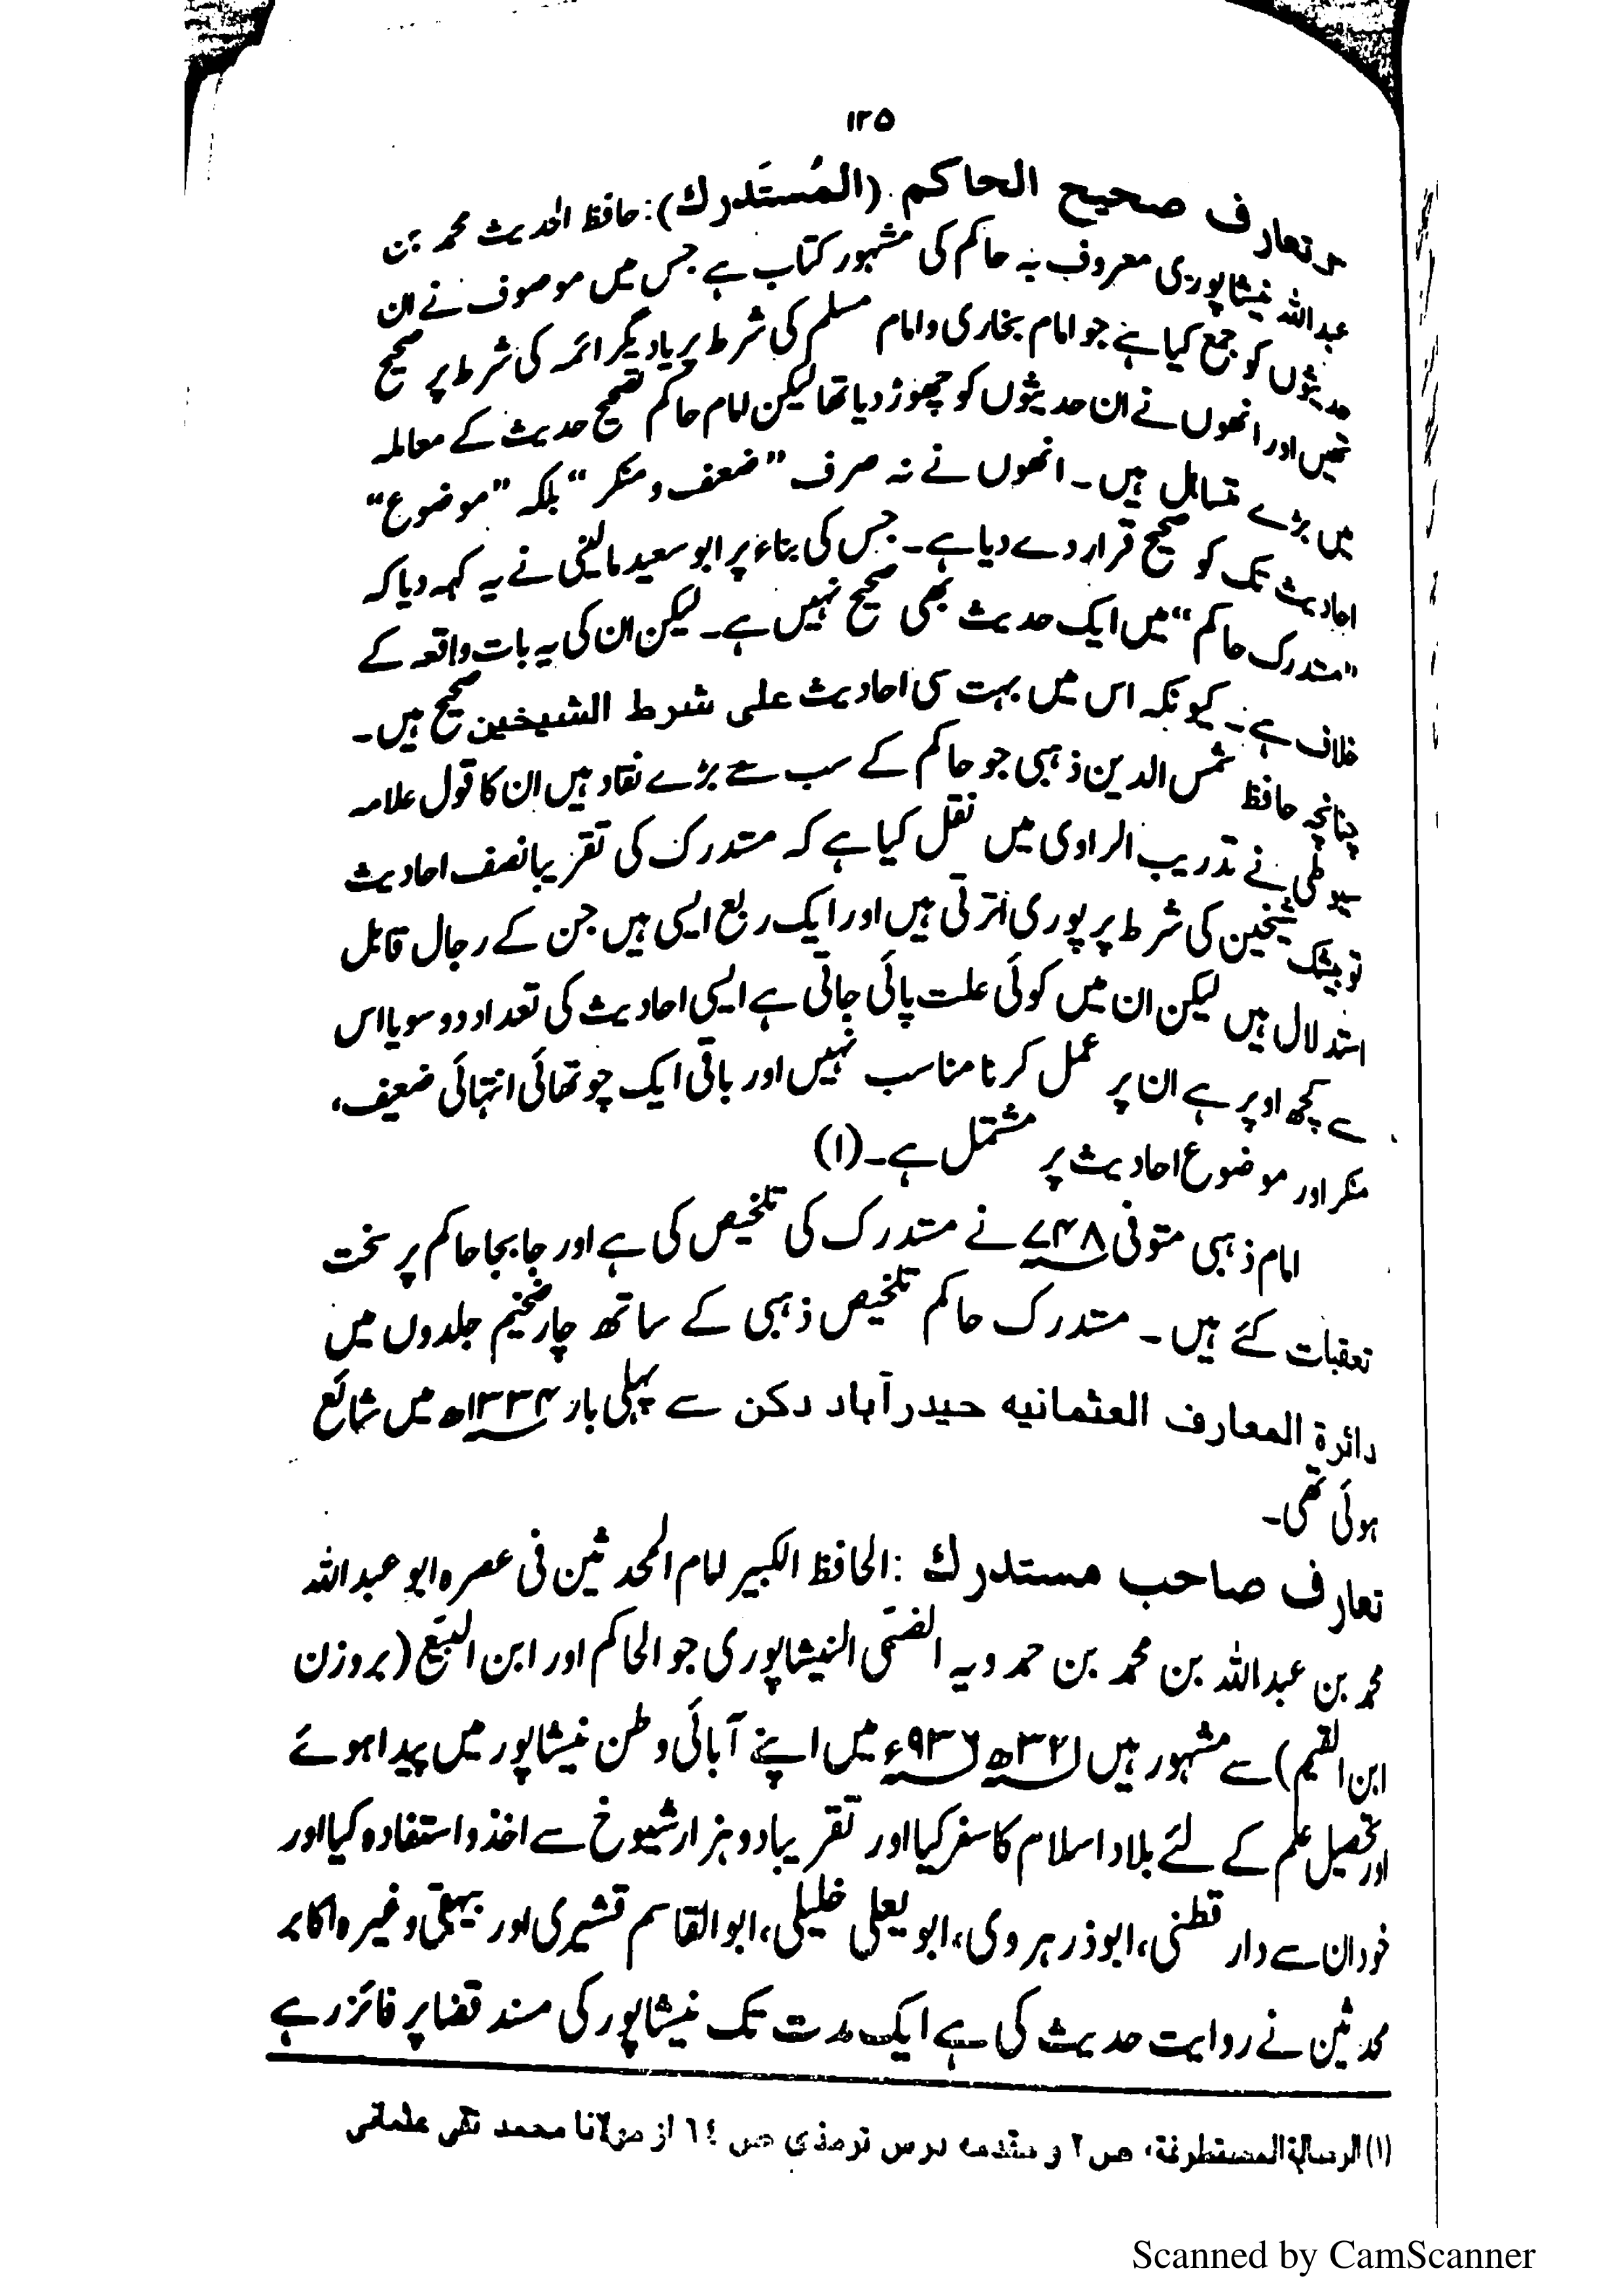 ۱۲۵
۳ر تعارف صحیح الحاکم (المُستَدرك): حافظ الحدیث محمد بن
عبداللہ نیشاپوری معروف بہ حاکم کی مشہور کتاب ہے جس میں موصوف نے ان
حدیثوں کو جمع کیا ہے جو امام بخاری و امام مسلم کی شرط پر یا دیگر ائمہ کی شرط پر صحیح
تھیں اور انھوں نے ان حدیثوں کو چھوڑ دیا تھا لیکن امام حاکم تصحیح حدیث کے معاملہ
میں بڑے متساہل ہیں۔ انھوں نے نہ صرف ”ضعف و منکر“ بلکہ ”موضوع“
احادیث تک کو صحیح قرار دے دیا ہے۔ جس کی بناء پر ابو سعید مالینی نے یہ کہہ دیا کہ
”متدرک حاکم“ میں ایک حدیث بھی صحیح نہیں ہے۔ لیکن ان کی یہ بات واقعہ کے
خلاف ہے۔ کیونکہ اس میں بہت سی احادیث علی شرط الشیخین صحیح ہیں۔
چنانچہ حافظ شمس الدین ذہبی جو حاکم کے سب سے بڑے نقاد ہیں ان کا قول علامہ
سیوطی نے تدریب الراوی میں نقل کیا ہے کہ متدرک کی تقریبا نصف احادیث
تو بیشک شیخین کی شرط پر پوری اترتی ہیں اور ایک ربع ایسی ہیں جن کے رجال قابل
استدلال ہیں لیکن ان میں کوئی علت پائی جاتی ہے ایسی احادیث کی تعداد دو سو یا اس
سے کچھ اوپر ہے ان پر عمل کرنا مناسب نہیں اور باقی ایک چوتھائی انتہائی ضعیف،
منکر اور موضوع احادیث پر مشتمل ہے۔(۱)
امام ذہبی متوفی ۷۴۸ے نے متدرک کی تلخیص کی ہے اور جابجا حاکم پر سخت
تعقبات کئے ہیں۔ متدرک حاکم تلخیص ذہبی کے ساتھ چار ضخیم جلدوں میں
دائرۃ المعارف العثمانیہ حیدرآباد دکن سے پہلی بار ۱۳۳۴ھ میں شائع
ہوئی تھی۔
تعارف صاحب مستدرك: الحافظ الکبیر امام المحدثین فی عصرہ ابو عبداللہ
محمد بن عبداللہ بن محمد بن حمدویہ الضبی النیشاپوری جو الحاکم اور ابن البَیِّع (بروزن
ابن القیم) سے مشہور ہیں ۳۲۱ھ ۹۳۶ء میں اپنے آبائی وطن نیشاپور میں پیدا ہوئے
اور تحصیل علم کے لئے بلاد اسلام کا سفر کیا اور تقریبا دو ہزار شیوخ سے اخذ و استفادہ کیا اور
خود ان سے دار قطنی، ابوذر ہروی، ابو یعلی خلیلی، ابوالقاسم قشیری اور بیہقی وغیرہ اکابر
محدثین نے روایت حدیث کی ہے ایک مدت تک نیشاپور کی مسند قضا پر فائز رہے
(۱) الرسالۃ المستطرفۃ، ص ۲ و مقدمہ درس ترمذی ص ٦٤ از مولانا محمد تقی عثمانی
Scanned by CamScanner